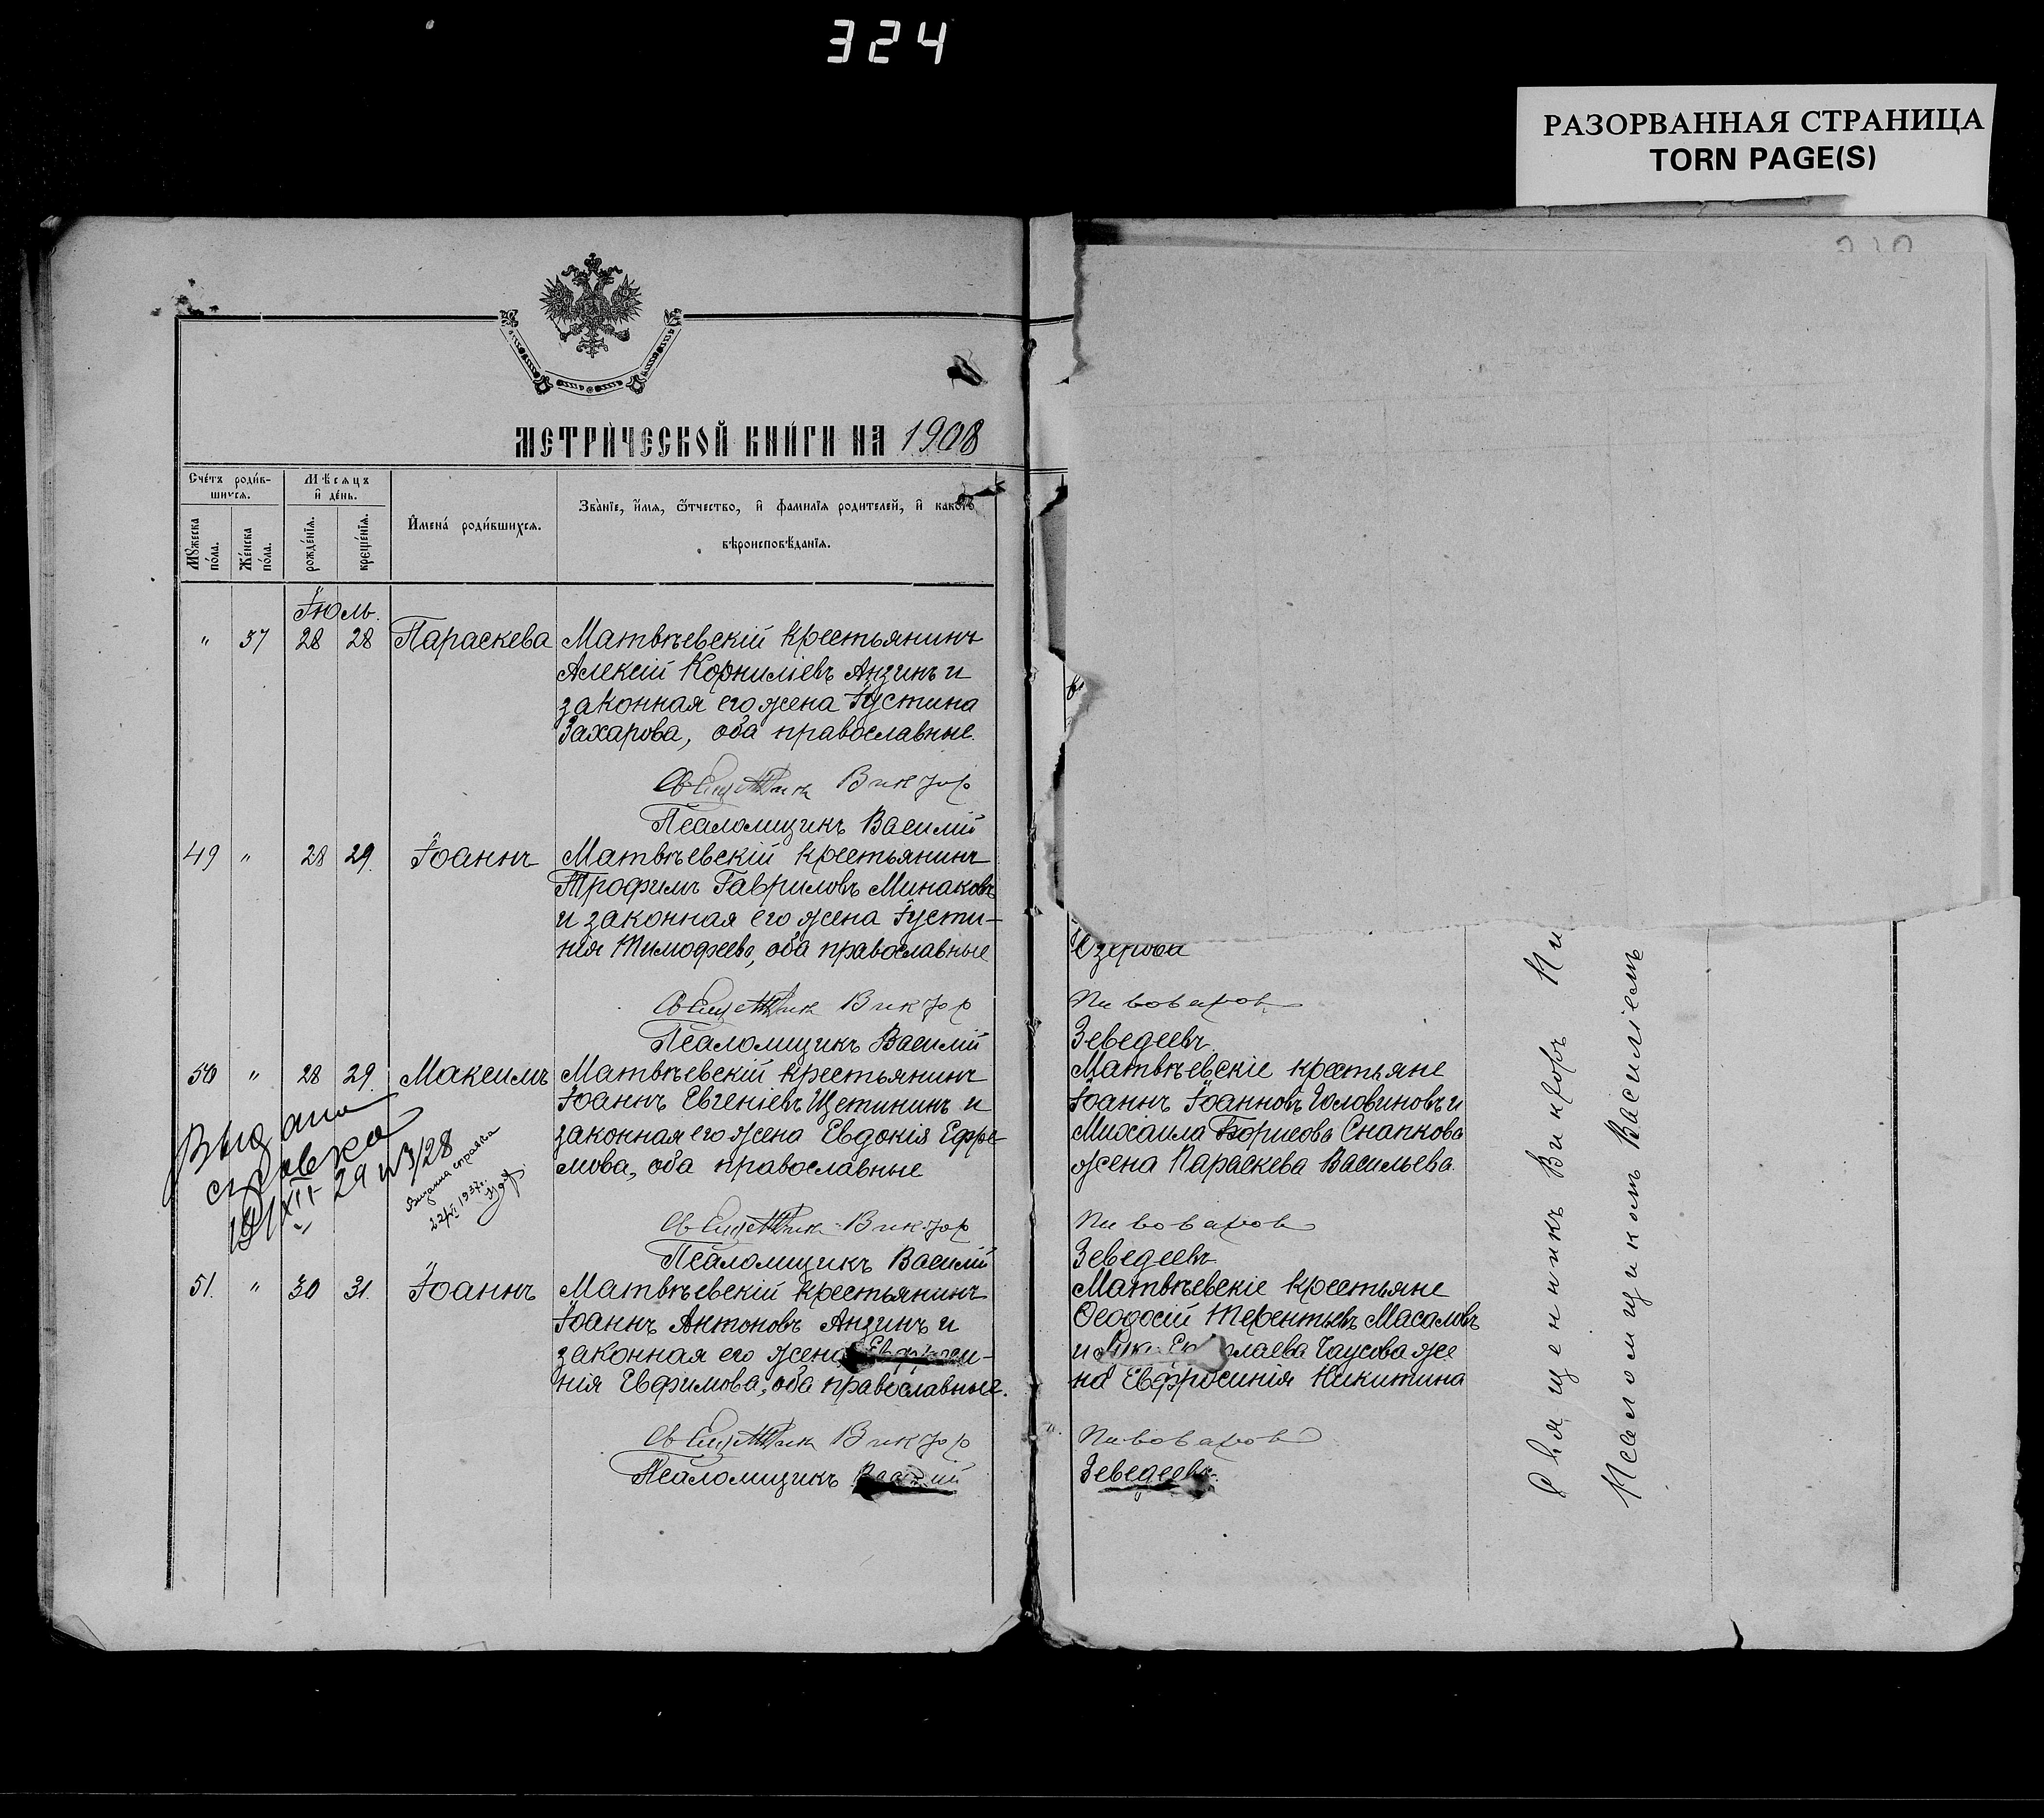 324
РАЗОРВАННАЯ СТРАНИЦА
TORN PAGE(S)
МЕТРИ́ЧЕСКОЙ КНИ́ГИ НА 1908
Сче́тъ роди́в-
шихся.
Мѣсяцъ
и҆ де́нь.
Мꙋ́жеска
по́ла.
Же́нска
по́ла.
рожде́нїѧ.
креще́нїѧ.
И҆мена́ роди́вшихсѧ.
Зва́нїе, и҆́мѧ, ѻ҆́тчество, и҆ фамилїѧ родителей, и҆ какогѡ
вѣроисповѣ́данїѧ.
Іюль.
" 37 28 28 Параскева Матвѣевскій крестьянинъ
Алексій Корниліевъ Анзинъ и
законная его жена Іустина
Захарова, оба православные.
Священник Виктор
Псаломщикъ Василій
49 " 28 29. Іоаннъ Матвѣевскій крестьянинъ
Трофимъ Гавриловъ Минаковъ
и законная его жена Іусти-
нія Тимофеева, оба православные
Священник Виктор
Псаломщикъ Василій
50 " 28 29. Максимъ Матвѣевскій крестьянинъ
Іоаннъ Евгеніевъ Щетининъ и
законная его жена Евдокія Ефре-
мова, оба православные
Выдана
справка
Выдана справка
1937г.
Священник Виктор
Псаломщикъ Василій
51. " 30 31. Іоаннъ Матвѣевскій крестьянинъ
Іоаннъ Антоновъ Анзинъ и
законная его жена Евфроси-
нія Евфимова, оба православные.
Священник Виктор
Псаломщикъ Василій
Пивоваров
Зеведеевъ
Матвѣевскіе крестьяне
Іоаннъ Іоанновъ Головиновъ и
Михаила Борисова Снапкова
жена Параскева Васильева.
Пивоваров
Зеведеевъ
Матвѣевскіе крестьяне
Ѳеодосій Терентьевъ Масаловъ
и лаева Чаусова же
на Евфросинія Никитина
Пивоваров
Зеведеевъ.
Священникъ Викторъ Пи
Псаломщикъ Василіемъ